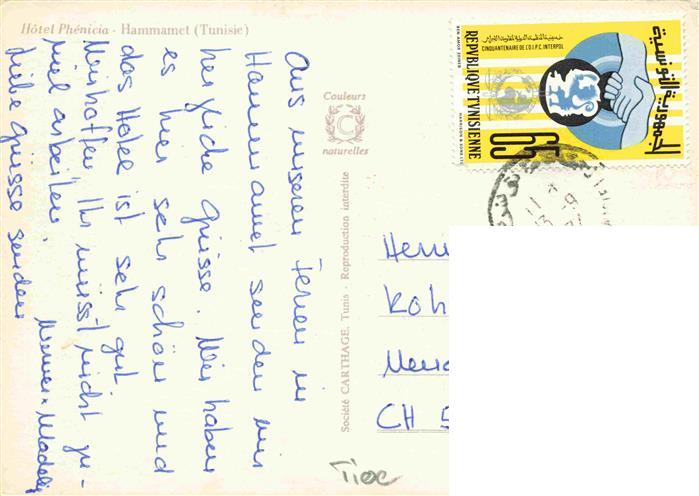 Hôtel Phénicia - Hammamet (Tunisie)
Aus unseren Ferien in
Hammamet senden wir
herzliche Grüsse. Wir haben
es hier sehr schön und
das Hotel ist sehr gut
Wir hoffen Ihr müsst nicht zu-
viel arbeiten.
Liebe Grüsse senden
Werner + Madelis
Couleurs
C
naturelles
Société CARTHAGE, Tunis - Reproduction interdite
الجمهورية التونسية
CINQUANTENAIRE DE L'O.I.P.C. INTERPOL
REPVBLIQVE TVNISIENNE
65
HARRISON & SONS LTD
Herr
Koh
CH 5
Tioc